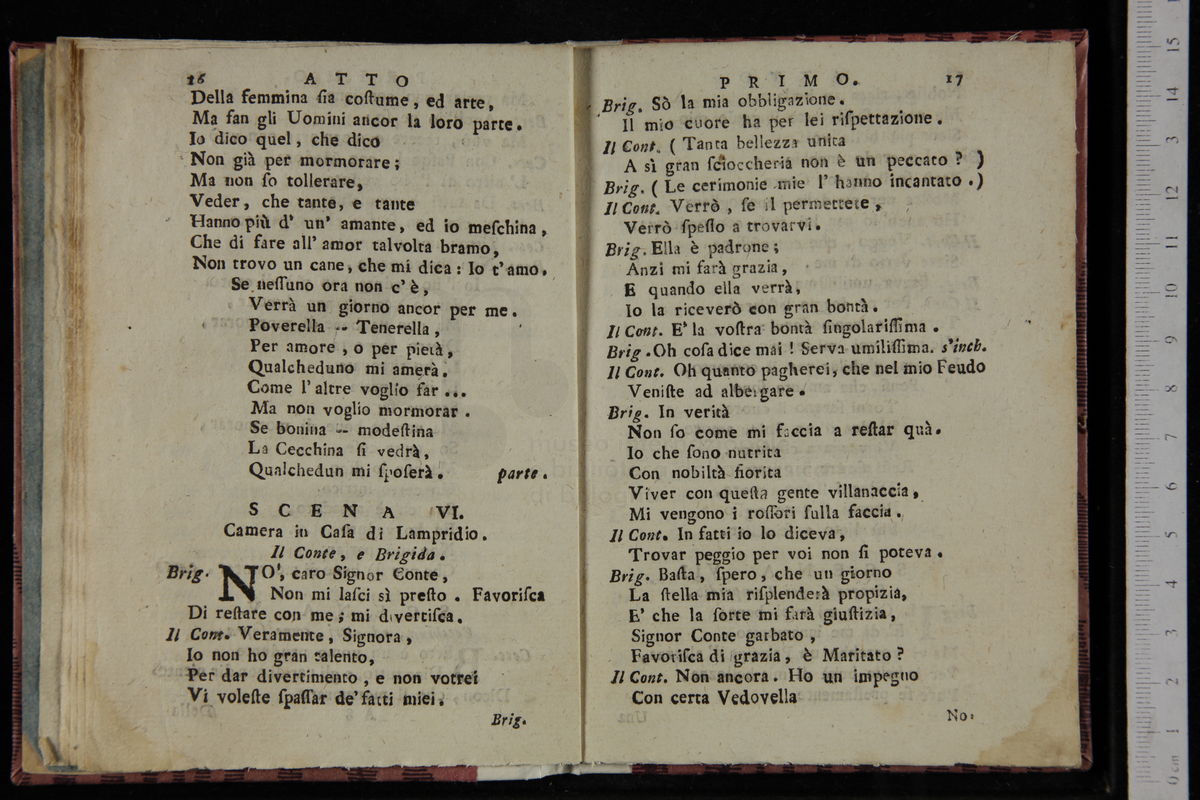 16 ATTO
Della femmina ſia coſtume, ed arte,
Ma fan gli Uomini ancor la loro parte.
Io dico quel, che dico
Non già per mormorare;
Ma non ſo tollerare,
Veder, che tante, e tante
Hanno più d' un' amante, ed io meſchina,
Che di fare all' amor talvolta bramo,
Non trovo un cane, che mi dica: Io t'amo.
Se neſſuno ora non c'è,
Verrà un giorno ancor per me.
Poverella -- Tenerella,
Per amore, o per pietà,
Qualcheduno mi amerà.
Come l'altre voglio far ...
Ma non voglio mormorar.
Se bonina -- modeſtina
La Cecchina ſi vedrà,
Qualchedun mi ſpoſerà. parte.
SCENA VI.
Camera in Caſa di Lampridio.
Il Conte, e Brigida.
Brig. NO', caro Signor Conte,
Non mi laſci sì preſto. Favoriſca
Di reſtare con me; mi divertiſca.
Il Cont. Veramente, Signora,
Io non ho gran talento,
Per dar divertimento, e non votrei
Vi voleſte ſpaſſar de' fatti miei.
Brig.
PRIMO. 17
Brig. Sò la mia obbligazione.
Il mio cuore ha per lei riſpettazione.
Il Cont. (Tanta bellezza unita
A sì gran ſcioccheria non è un peccato?)
Brig. (Le cerimonie mie l'hanno incantato.)
Il Cont. Verrò, ſe il permettete,
Verrò ſpeſſo a trovarvi.
Brig. Ella è padrone;
Anzi mi farà grazia,
E quando ella verrà,
Io la riceverò con gran bontà.
Il Cont. E' la voſtra bontà ſingolariſſima.
Brig. Oh coſa dice mai! Serva umiliſſima. s'inch.
Il Cont. Oh quanto pagherei, che nel mio Feudo
Veniſte ad albergare.
Brig. In verità
Non ſo come mi faccia a reſtar quà.
Io che ſono nutrita
Con nobiltà fiorita
Viver con queſta gente villanaccia,
Mi vengono i roſſori ſulla faccia.
Il Cont. In fatti io lo diceva,
Trovar peggio per voi non ſi poteva.
Brig. Baſta, ſpero, che un giorno
La ſtella mia riſplenderà propizia,
E' che la ſorte mi farà giuſtizia,
Signor Conte garbato,
Favoriſca di grazia, è Maritato?
Il Cont. Non ancora. Ho un impegno
Con certa Vedovella
No.
0 cm 1 2 3 4 5 6 7 8 9 10 11 12 13 14 15